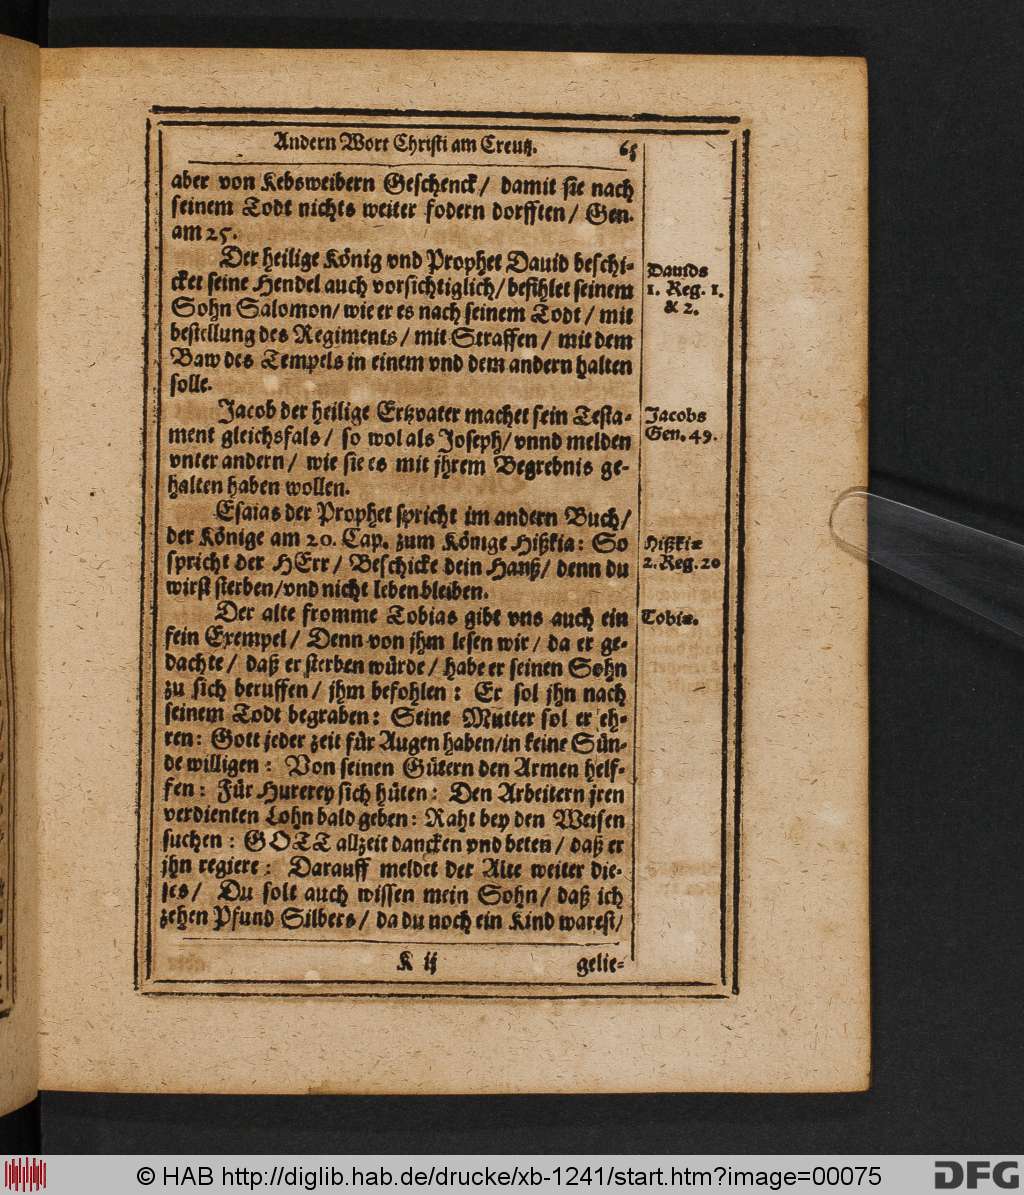 Andern Wort Christi am Creutz. 65
aber von Kebsweibern Geschenck / damit sie nach
seinem Todt nichts weiter fodern dorfften / Gen.
am 25.
Der heilige König vnd Prophet Dauid beschi-
cket seine Hendel auch vorsichtiglich / befihlet seinem
Sohn Salomon / wie er es nach seinem Todt / mit
bestellung des Regiments / mit Straffen / mit dem
Baw des Tempels in einem vnd dem andern halten
solle.
Dauids
1. Reg. 1.
& 2.
Jacob der heilige Ertzvater machet sein Testa-
ment gleichsfals / so wol als Joseph / vnnd melden
vnter andern / wie sie es mit jhrem Begrebnis ge-
halten haben wollen.
Jacobs
Gen. 49.
Esaias der Prophet spricht im andern Buch /
der Könige am 20. Cap. zum Könige Hißkia: So
spricht der HErr / Beschicke dein Hauß / denn du
wirst sterben / vnd nicht leben bleiben.
Hißkiæ
2. Reg. 20
Der alte fromme Tobias gibt vns auch ein
fein Exempel / Denn von jhm lesen wir / da er ge-
dachte / daß er sterben würde / habe er seinen Sohn
zu sich beruffen / jhm befohlen : Er sol jhn nach
seinem Todt begraben : Seine Mutter sol er eh-
ren : Gott jeder zeit für Augen haben / in keine Sün-
de willigen : Von seinen Gütern den Armen helf-
fen : Für Hurerey sich hüten : Den Arbeitern jren
verdienten Lohn bald geben : Raht bey den Weisen
suchen : GOTT allzeit dancken vnd beten / daß er
jhn regiere : Darauff meldet der Alte weiter die-
ses / Du solt auch wissen mein Sohn / daß ich
zehen Pfund Silbers / da du noch ein Kind warest /
Tobiæ.
K ij gelie-
© HAB http://diglib.hab.de/drucke/xb-1241/start.htm?image=00075
DFG